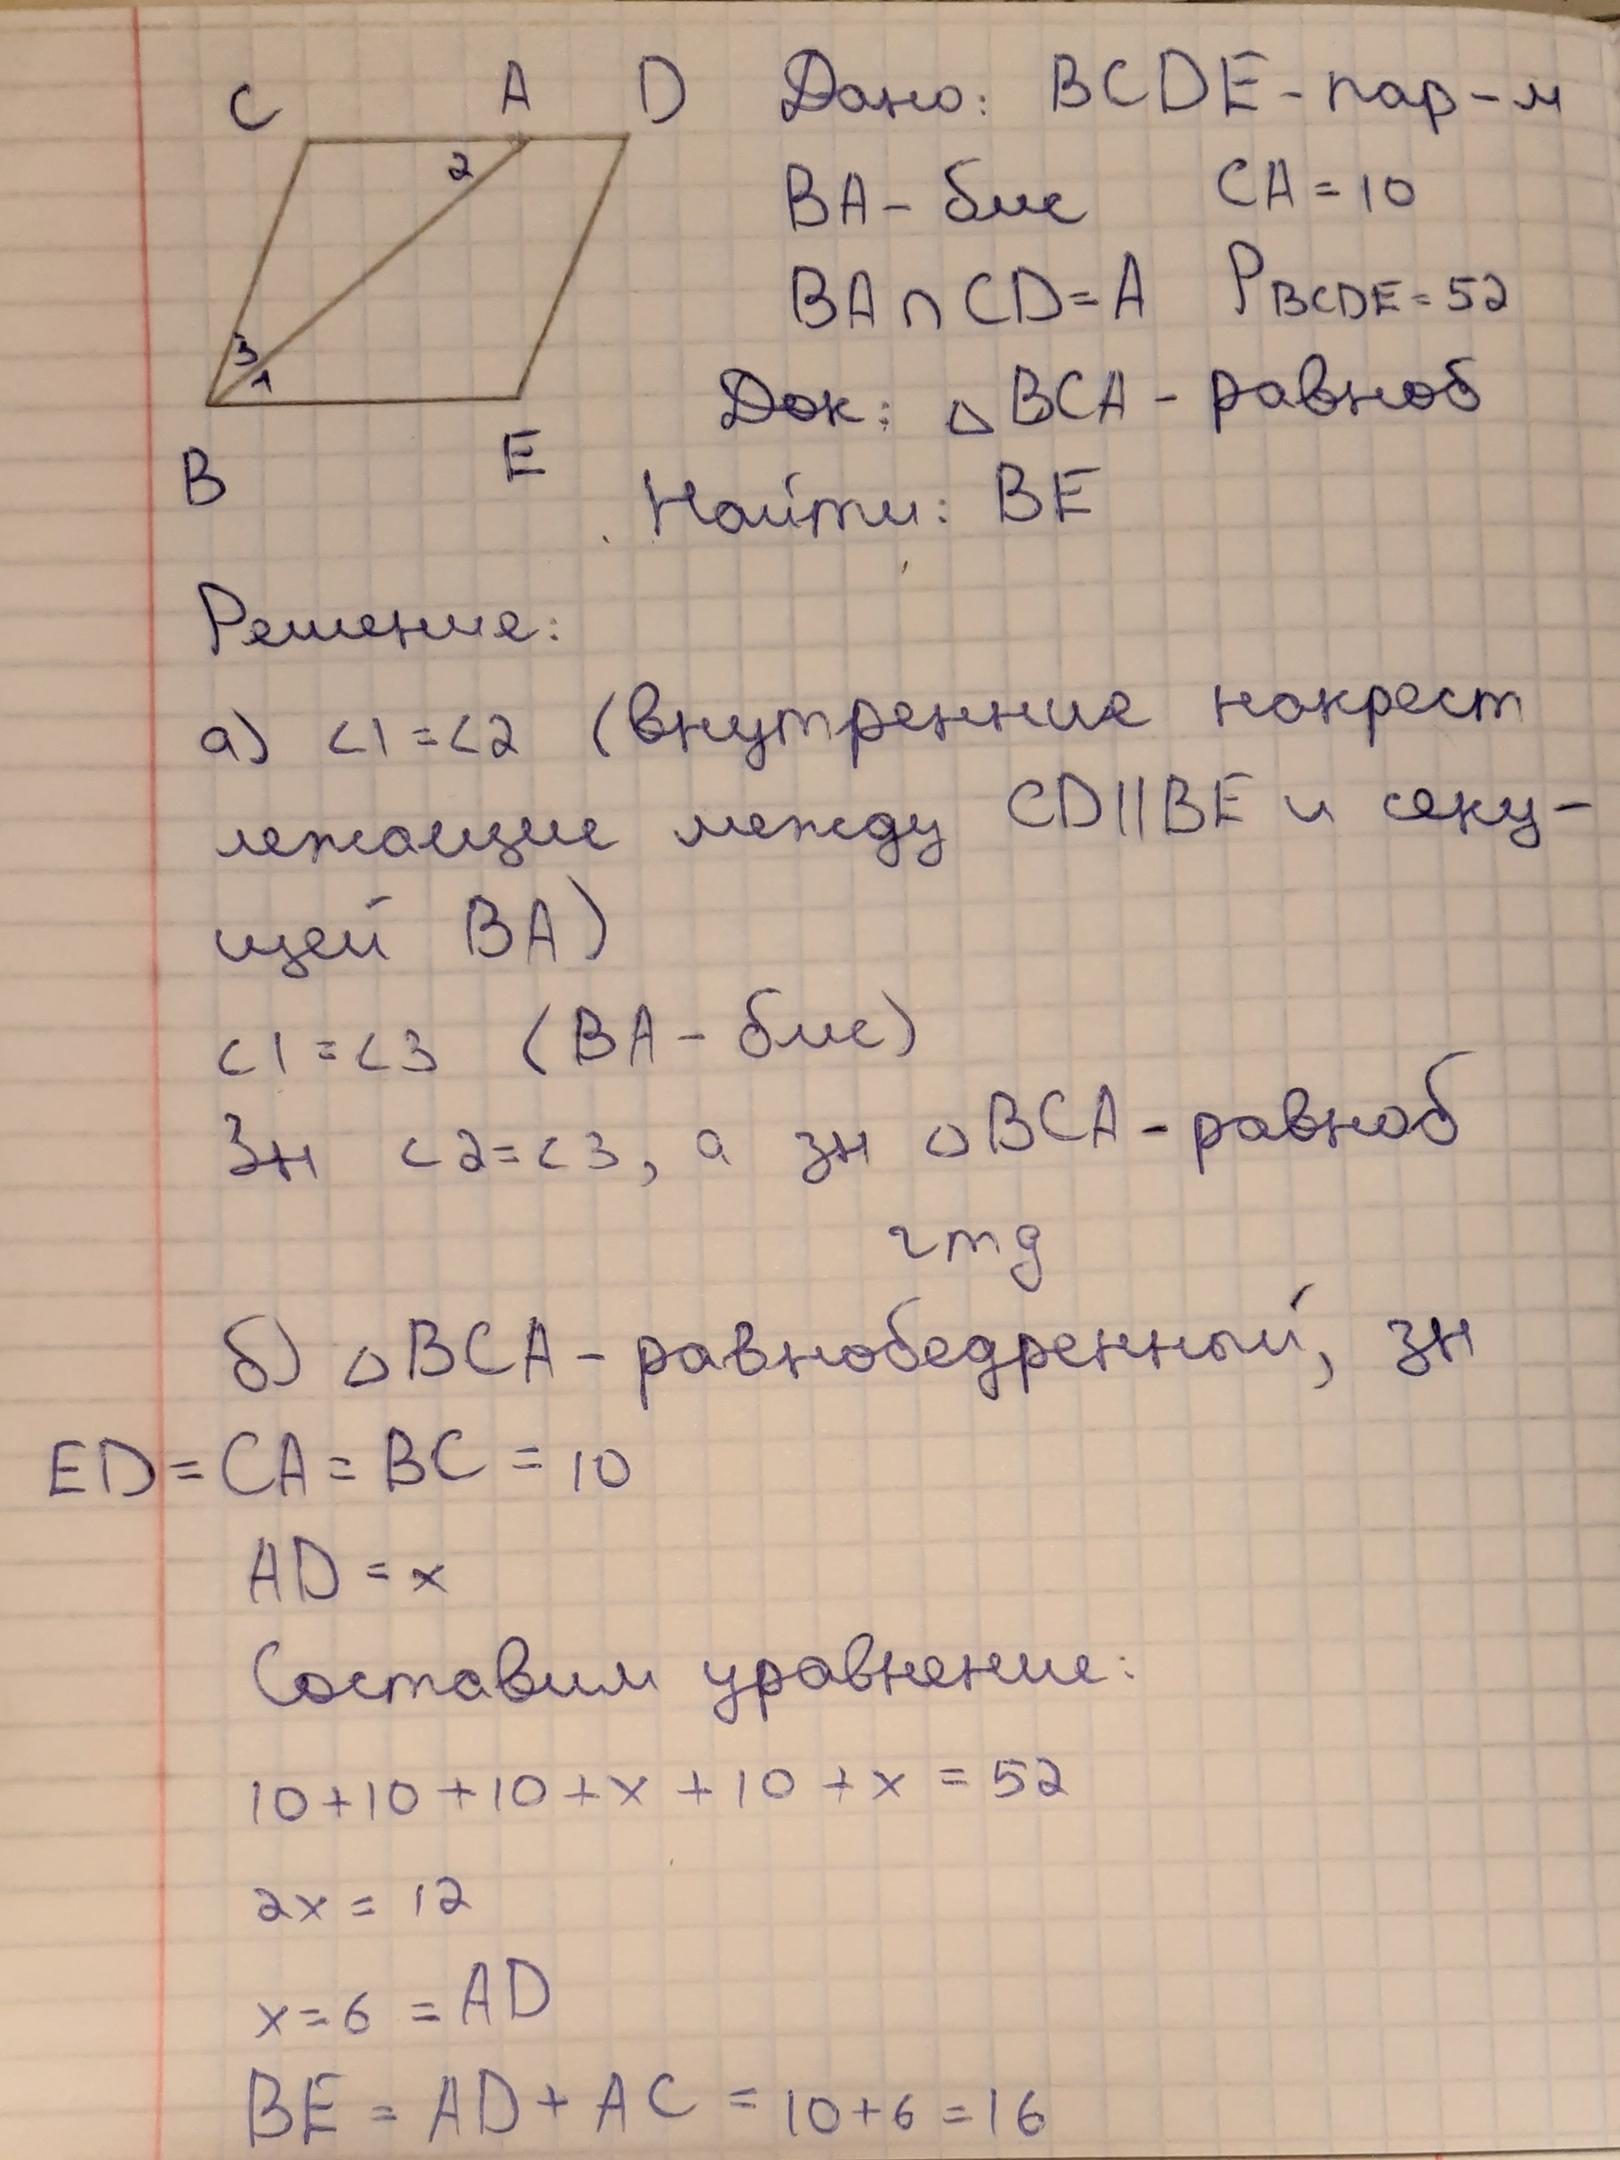 C A D
2
3
1
B E
Дано: BCDE - пар-м
BA - бис CA = 10
BA ∩ CD = A P BCDE = 52
Док: △ BCA - равноб
Найти: BE
Решение:
а) ∠1 = ∠2 (внутренние накрест
лежащие между CD || BE и секу-
щей BA)
∠1 = ∠3 (BA - бис)
Зн ∠2 = ∠3, а зн △ BCA - равноб
чтд
б) △ BCA - равнобедренный, зн
ED = CA = BC = 10
AD = x
Составим уравнение:
10 + 10 + 10 + x + 10 + x = 52
2x = 12
x = 6 = AD
BE = AD + AC = 10 + 6 = 16